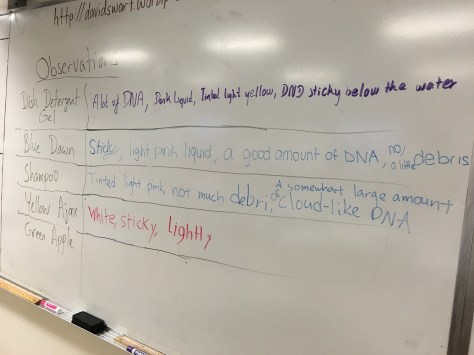 http://davidswart.wordp
Observations
Dish Detergent Gel A lot of DNA, Dark liquid, Tinted light yellow, DND sticky below the water
Blue Dawn Sticky, light pink liquid, a good amount of DNA, no/a little debris
Shampoo Tinted light pink not much debri, A somewhat large amount of cloud-like DNA
Yellow Ajax White, sticky, lightly
Green Apple